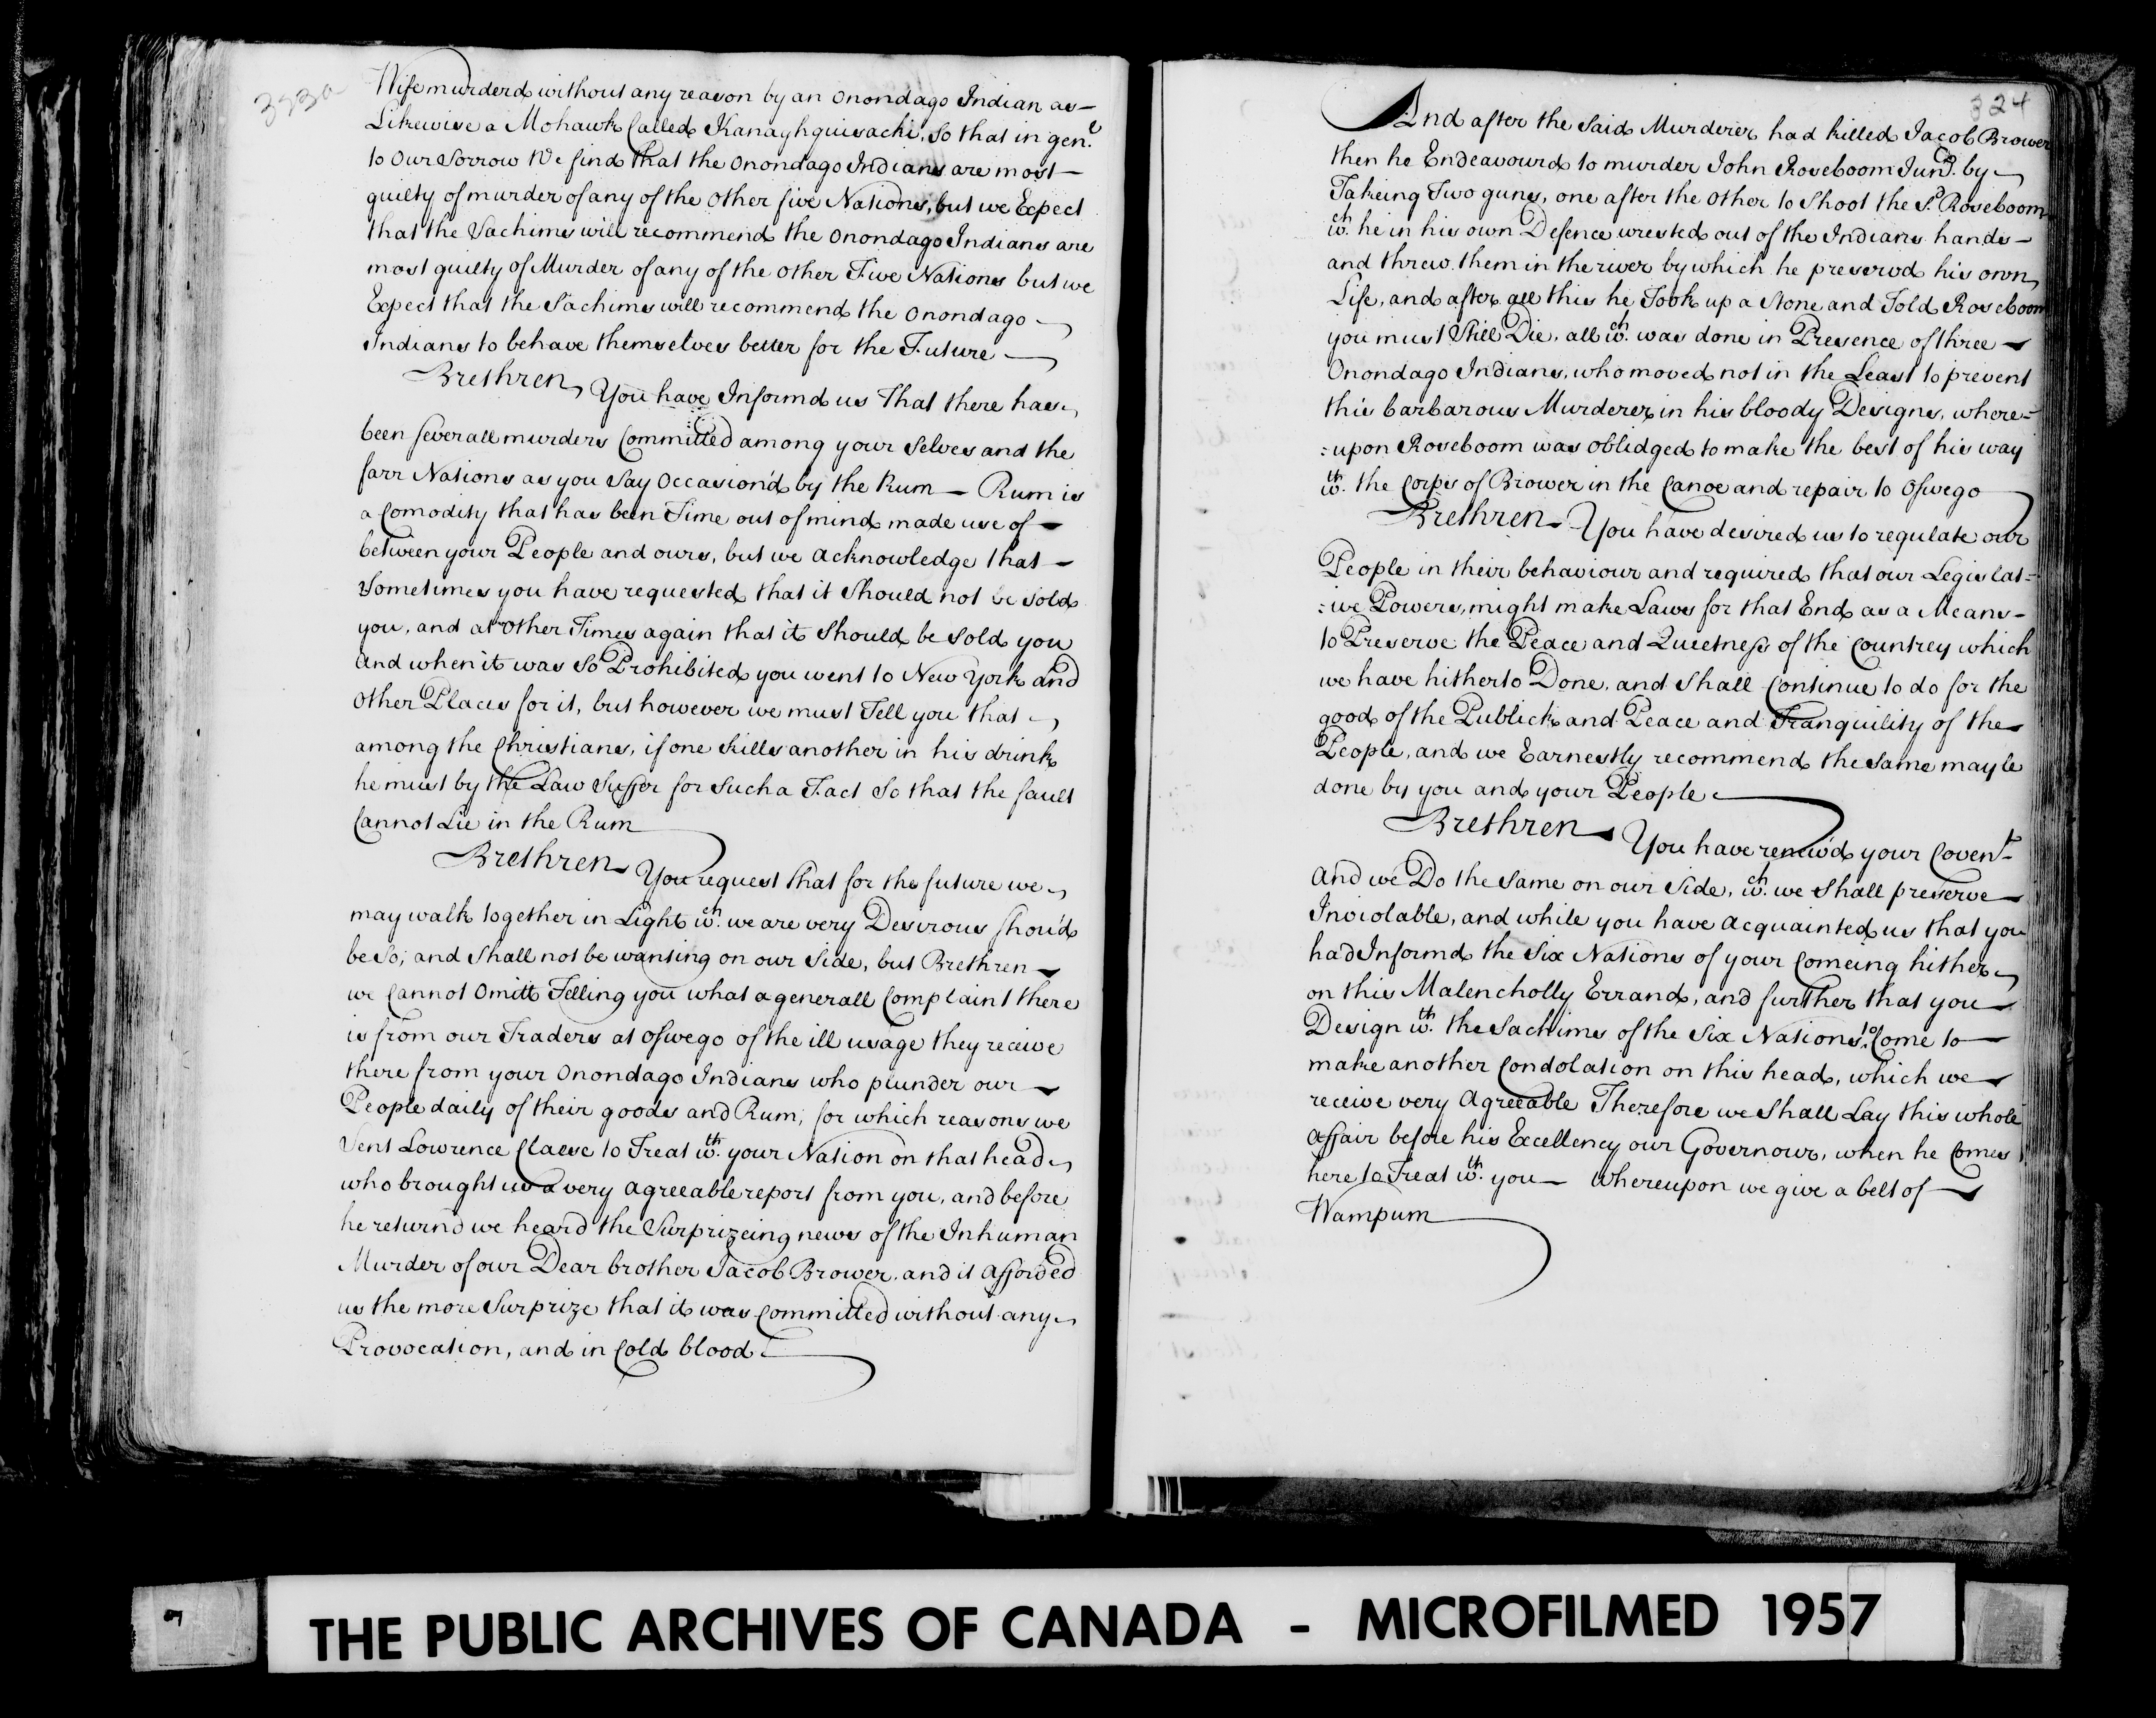 323a
Wife murderd without any reason by an Onondago Indian as
Likewise a Mohawk Called Kanaghquisacki, So that in gen.l
to Our Sorrow We find that the Onondago Indians are most
guilty of murder of any of the Other five Nations, but we Expect
that the Sachims will recommend the Onondago Indians are
most guilty of Murder of any of the Other Five Nations but we
Expect that the Sachims will recommend the Onondago
Indians to behave themselves better for the Future
Brethren, You have Informd us That there has
been severall murders Committed among your Selves and the
farr Nations as you Say Occasion'd by the Rum — Rum is
a Comodity that has been Time out of mind made use of
between your People and ours, but we acknowledge that
Sometimes you have requested that it Should not be Sold
you, and at Other Times again that it Should be Sold you
and when it was So Prohibited you went to New York and
Other Places for it, but however we must Tell you that
among the Christians, if one kills another in his drink
he must by the Law Suffer for Such a Fact So that the fault
Cannot Lie in the Rum
Brethren You request that for the future we
may walk together in Light w.ch we are very Desirous Shou'd
be So; and Shall not be wanting on our Side, but Brethren
we Cannot Omitt Telling you what a generall Complaint there
is from our Traders at Oswego of the ill usage they receive
there from your Onondago Indians who plunder our
People daily of their goods and Rum; for which reasons we
Sent Lowrence Claese to Treat w.th your Nation on that head
who brought us a very agreeable report from you, and before
he return'd we heard the Surprizeing news of the Inhuman
Murder of our Dear brother Jacob Brower, and it afforded
us the more Surprize that it was Committed without any
Provocation, and in Cold blood
324
And after the Said Murderer had killed Jacob Brower
then he Endeavourd to murder John Roseboom Jun.r by
Takeing Two guns, one after the Other to Shoot the S.d Roseboom
w.ch he in his own Defence wrested out of the Indians hands
and threw them in the river by which he preservd his own
Life, and after all this he Took up a Stone and Told Roseboom
you must Still Die, all w.ch was done in Presence of three
Onondago Indians, who moved not in the Least to prevent
this barbarous Murderer in his bloody Designs, where=
=upon Roseboom was Oblidged to make the best of his way
w.th the Corps of Brower in the Canoe and repair to Oswego
Brethren You have desired us to regulate our
People in their behaviour and required that our Legislat=
=ive Powers, might make Laws for that End as a Means
to Preserve the Peace and Quietness of the Countrey which
we have hitherto Done, and Shall Continue to do for the
good of the Publick and Peace and Tranquility of the
People, and we Earnestly recommend the Same may be
done by you and your People
Brethren You have renew'd your Coven.t
and we Do the Same on our Side, w.ch we Shall preserve
Inviolable, and while you have acquainted us that you
had Informd the Six Nations of your Comeing hither
on this Malencholly Errand, and further that you
Design w.th the Sachims of the Six Nations to Come to
make another Condolation on this head, which we
receive very Agreeable Therefore we Shall Lay this whole
affair before his Excellency our Governour, when he Comes
here to Treat w.th you — Whereupon we give a belt of
Wampum
THE PUBLIC ARCHIVES OF CANADA - MICROFILMED 1957